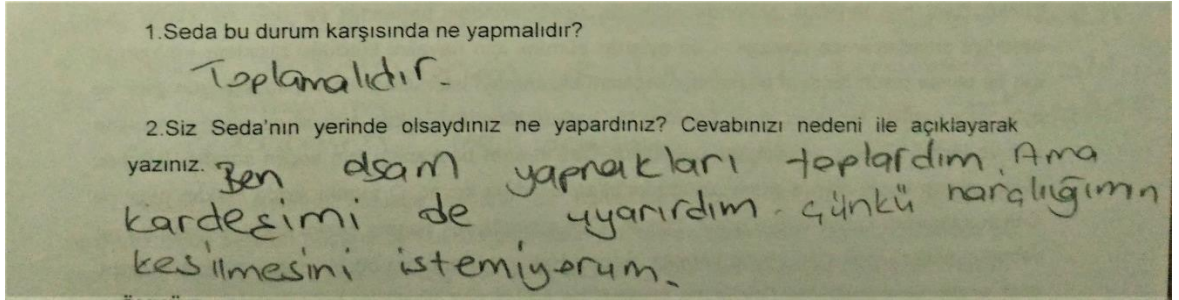 1.Seda bu durum karşısında ne yapmalıdır?
Toplamalıdır.
2.Siz Seda'nın yerinde olsaydınız ne yapardınız? Cevabınızı nedeni ile açıklayarak
yazınız. Ben olsam yaprakları toplardım. Ama
kardeşimi de uyarırdım. Çünkü harçlığımın
kesilmesini istemiyorum.